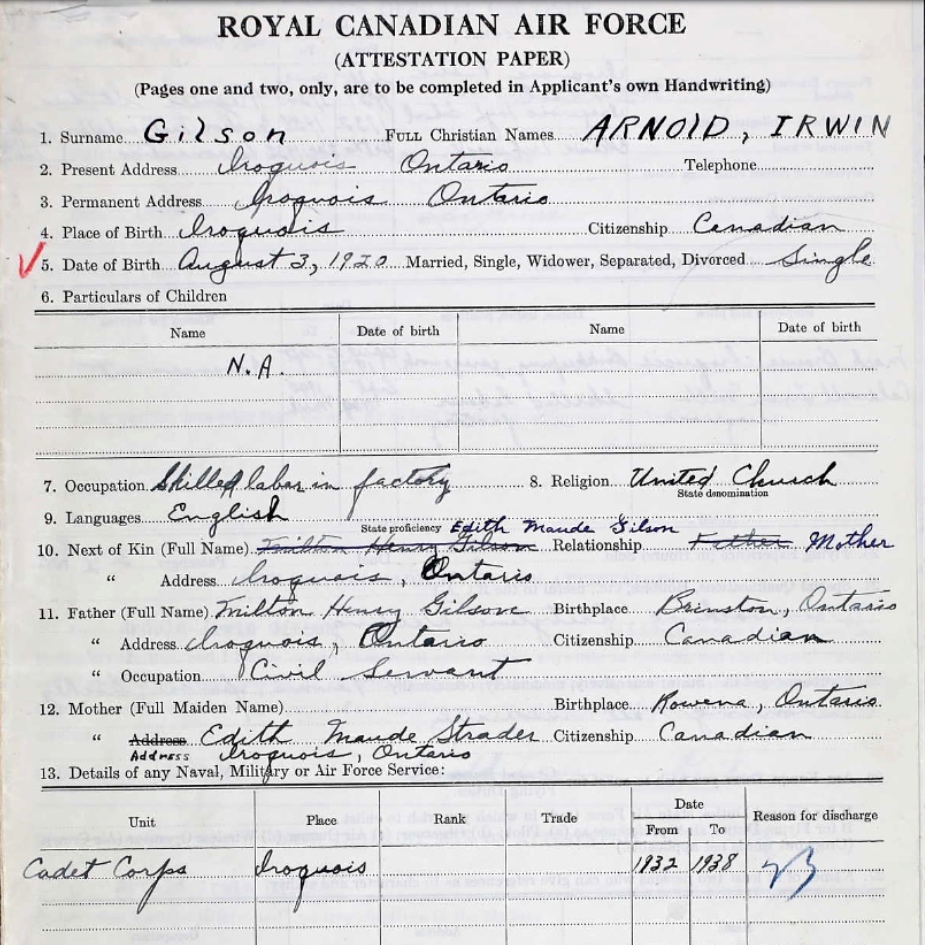 ROYAL CANADIAN AIR FORCE
(ATTESTATION PAPER)
(Pages one and two, only, are to be completed in Applicant's own Handwriting)
1. Surname Gilson FULL Christian Names ARNOLD, IRWIN
2. Present Address Iroquois Ontario Telephone
3. Permanent Address Iroquois Ontario
4. Place of Birth Iroquois Citizenship Canadian
5. Date of Birth August 3, 1920 Married, Single, Widower, Separated, Divorced Single
6. Particulars of Children
Name Date of birth Name Date of birth
N.A.
7. Occupation Skilled labor in factory 8. Religion United Church
State denomination
9. Languages English
State proficiency Edith Maude Gilson
10. Next of Kin (Full Name) Milton Henry Gilson Relationship Father Mother
" Address Iroquois, Ontario
11. Father (Full Name) Milton Henry Gilson Birthplace Brinston, Ontario
" Address Iroquois, Ontario Citizenship Canadian
" Occupation Civil Servant
12. Mother (Full Maiden Name) Birthplace Rowena, Ontario
" Address Edith Maude Strader Citizenship Canadian
Address Iroquois, Ontario
13. Details of any Naval, Military or Air Force Service:
Unit Place Rank Trade Date Reason for discharge
From To
Cadet Corps Iroquois 1932 1938